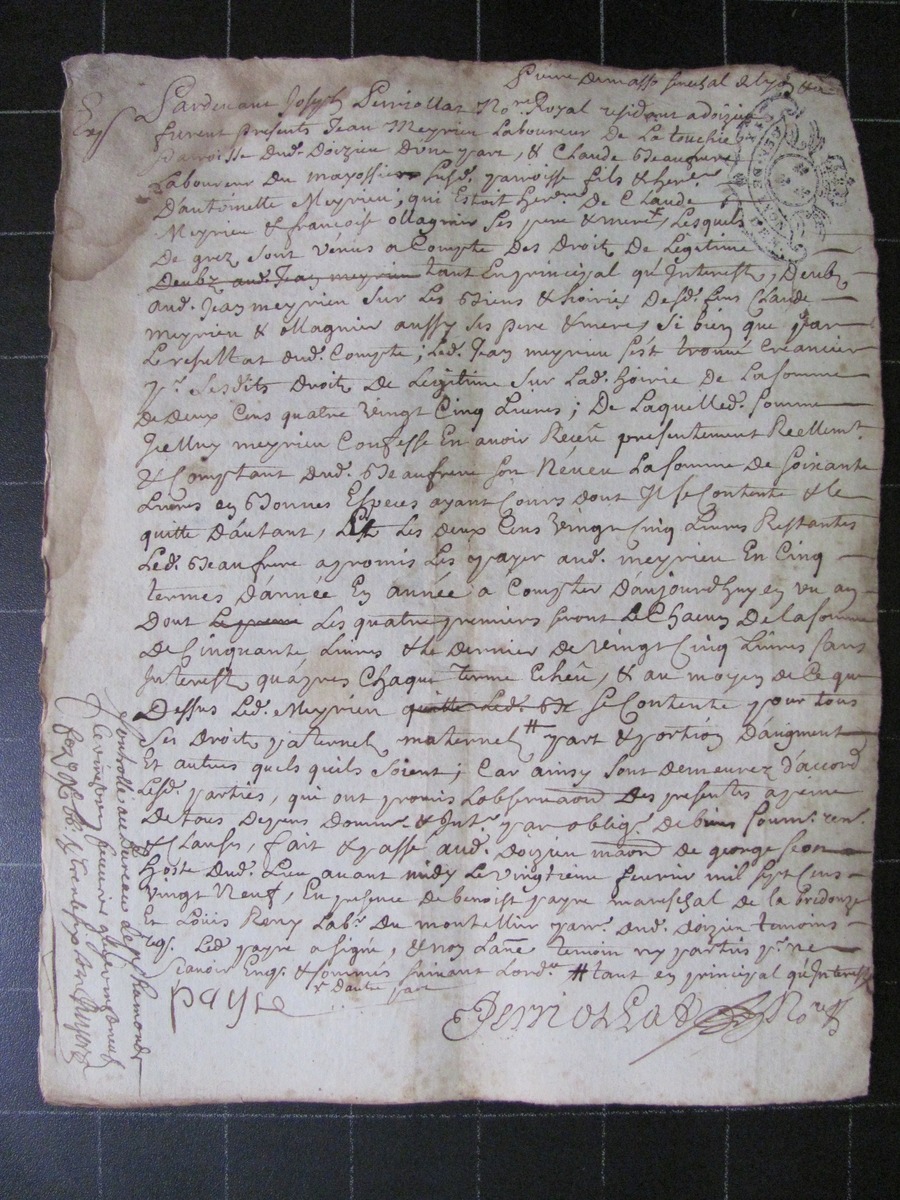 Exp
Pardevant Joseph Perriollat No.re Royal residant a doizieu
furent presents Jean Meyrieu Laboureur de La touchie
parroisse dud. Doizieu d'une part, & Claude Beaufrere
Laboureur du mayossier susd. parroisse fils & her.er
D'antoinette Meyrieu, qui Estoit her.re De Claude
Meyrieu & francoise Magnier Ses pere & mere, Lesquels
De grez Sont Venus a Compte Des Droits De Legitime
Deubz aud. Jean meyrieu tant En principal qu'Interest, Deubz
aud. Jean meyrieu Sur Les Biens & hoirie Desd. feus Claude
Meyrieu & Magnier aussy Ses pere & mere, Si bien que par
Le resultat dud. Compte, Led. Jean meyrieu s'est trouvé Creancier
p.r Sesdits Droits De Legitime Sur Lad. hoirie De La Somme
De Deux Cens quatre Vingt Cinq Livres; De Laquelled. Somme
Icelluy meyrieu Confesse En avoir Receu presentement Reellem.t
& Comptant dud. Beaufrere Son Neveu La Somme De Soixante
Livres en Bonnes Especes ayant Cours dont Il se Contente & le
quitte D'autant, Et Les Deux Cens Vingt Cinq Livres Restantes
Led. Beaufrere a promis Les payer aud. meyrieu En Cinq
termes D'année En année a Compter D'aujourd'huy en un an
Dont Le premie Les quatre premiers Seront Chacun De la Somme
De Cinquante Livres & le dernier De Vingt Cinq Livres Sans
Interest qu'apres Chaque terme Echeu, & au moyen de Ce que
Dessus Led. Meyrieu quitte Led. Be Se Contente pour tous
Ses Droits paternel maternel # part & portion D'augment
Et autres quels qu'ils Soient; Car ainsy Sont Demeurez d'accord
Lesd. parties, qui ont promis L'observaon Des presentes a peine
De tous Depens Domm. & Int. par oblig. De biens Soum. ren.
& Clauses, fait & passé aud. doizieu maon de george
hoste dud. Lieu avant midy Le Vingtieme fevrier mil Sept Cens
Vingt Neuf, En presence de benoist payre mareschal de la
Et Loüis Lab.r Du montellier parr. dud. doizieu temoins
req. Led. payre a Signé, & non L'autre temoin ny parties p.r ne
Scavoir Enq. & Sommés Suivant Lord.ce # tant en principal qu'Interest
d'autre part
payre
Perriollat No.re R.
Controllé au Bureau de St Chamond
Le vingt fevrier